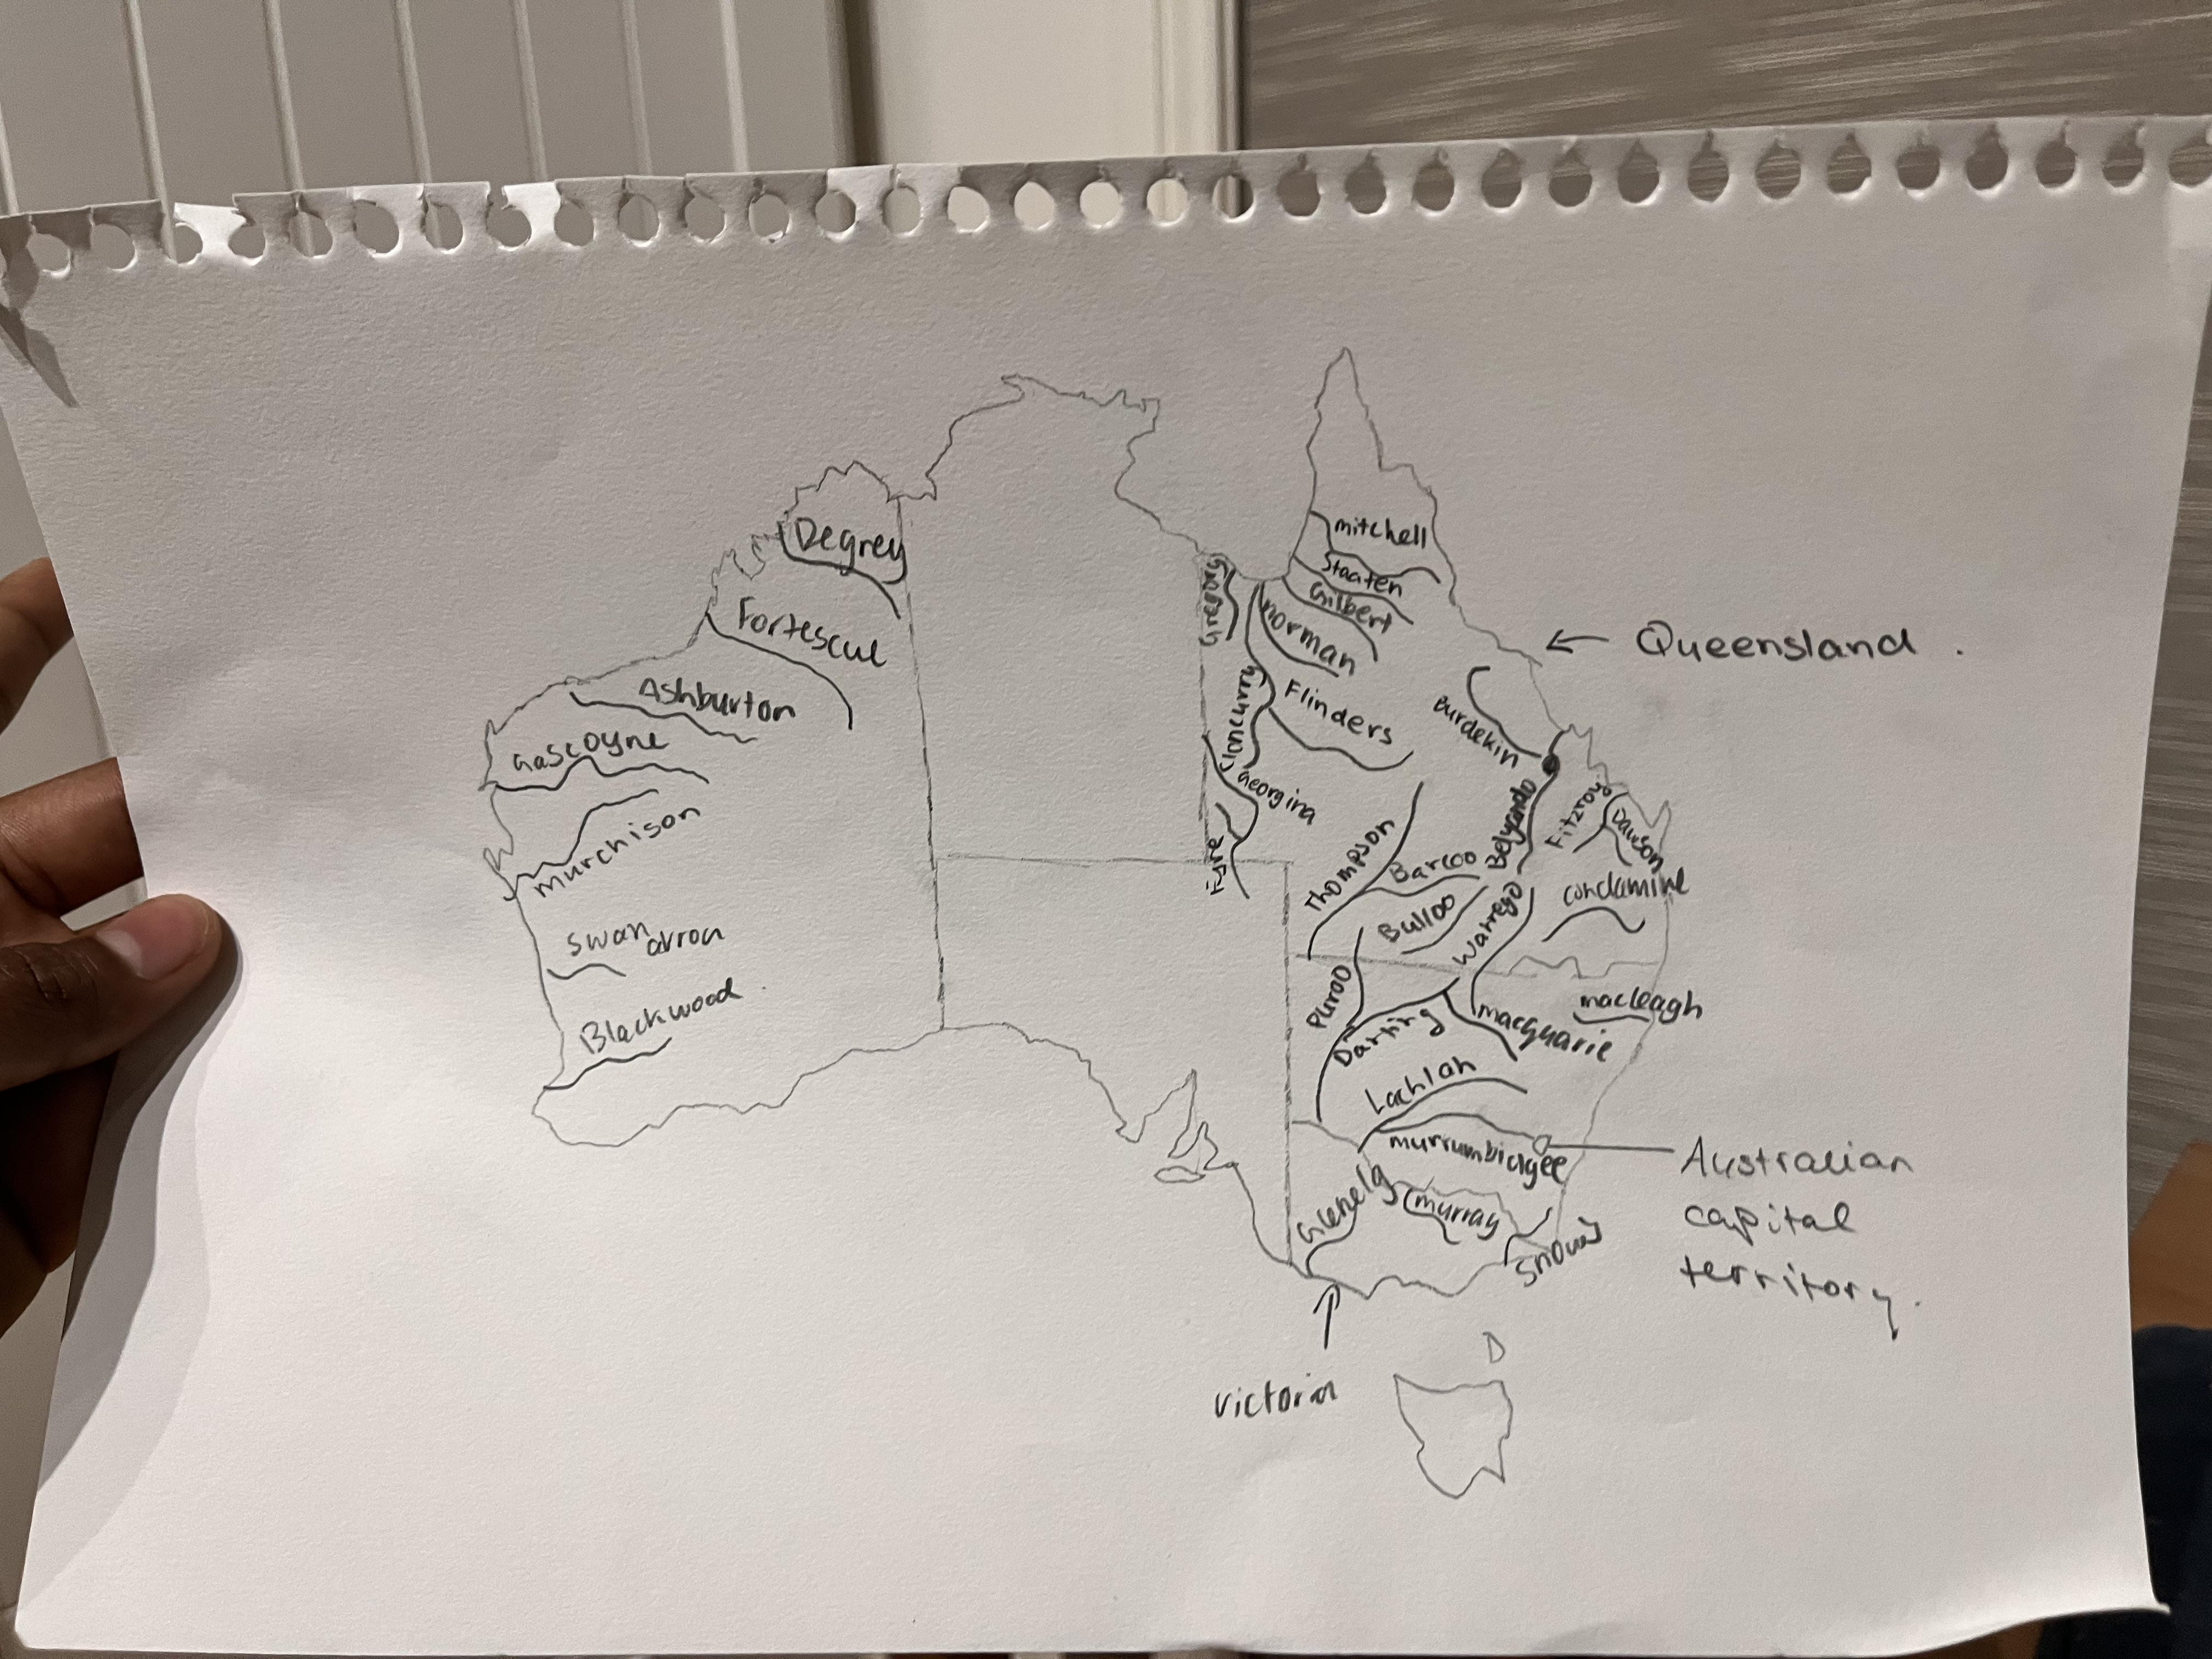 Degrey
Fortescue
Ashburton
Gascoyne
murchison
swan
avron
Blackwood
mitchell
Staaten
Gilbert
norman
Gregory
Flinders
Cloncurry
Georgina
Eyre
Burdekin
Belyando
Fitzroy
Dawson
Thompson
Barcoo
Bulloo
Warrego
condamine
Paroo
Darling
macquarie
macleagh
Lachlan
murrumbidgee
Glenelg
murray
Snowy
← Queensland .
Australian
capital
territory.
victoria